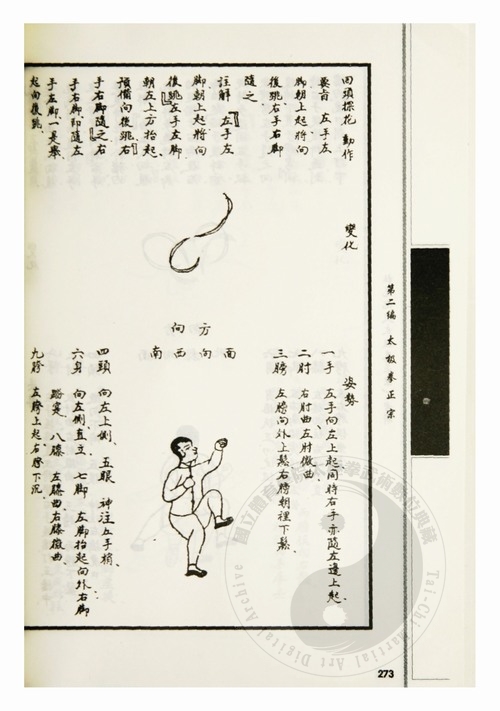 回頭探花 動作
要旨 左手左
脚朝上起將向
後跳右手右脚
隨之
註解 『左手左
脚朝上起將向
後跳』左手左脚
朝左上方抬起、
預備向後跳『右
手右脚隨之』右
手右脚即隨左
手左脚、一是舉
起向後跳、
變化
方向
面向西南
姿勢
一手 左手向左上起、同時右手亦隨左邊上起、
二肘 右肘曲、左肘微曲、
三膀 左膀向外上鬆右膀朝裡下鬆、
四頭 向左上側、五眼 神注左手梢、
六身 向左側直立、七脚 左脚抬起向外右脚
踏實 八膝 左膝曲、右膝微曲、
九胯 左胯上起、右胯下沉、
第二編 太極拳正宗
273
Tai-Chi Martial Art Digital Archive